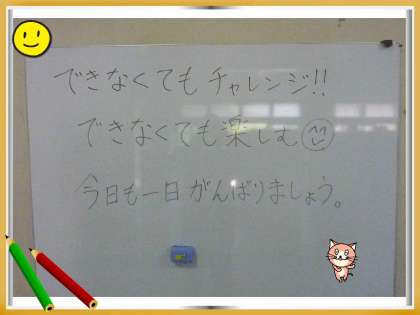 できなくてもチャレンジ!!
できなくても楽しむ
今日も一日がんばりましょう。